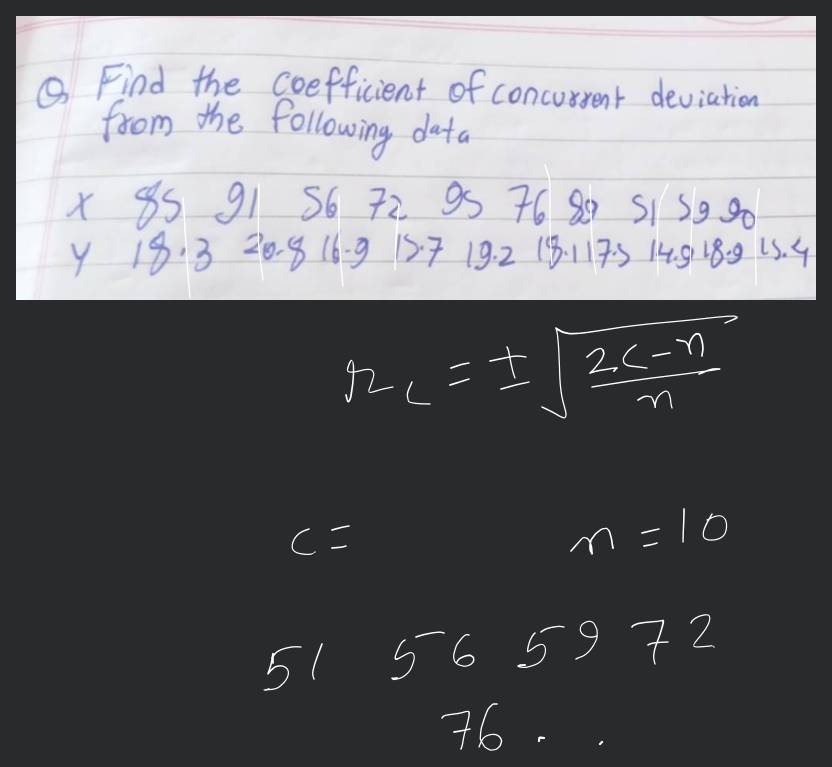 Q Find the coefficient of concurrent deviation
from the following data
X 85 91 56 72 95 76 89 51 59 90
Y 18.3 20.8 16.9 15.7 19.2 18.1 17.5 14.9 18.9 15.4
r_c = ± √((2c-n)/n)
c = n = 10
51 56 59 72
76 . .